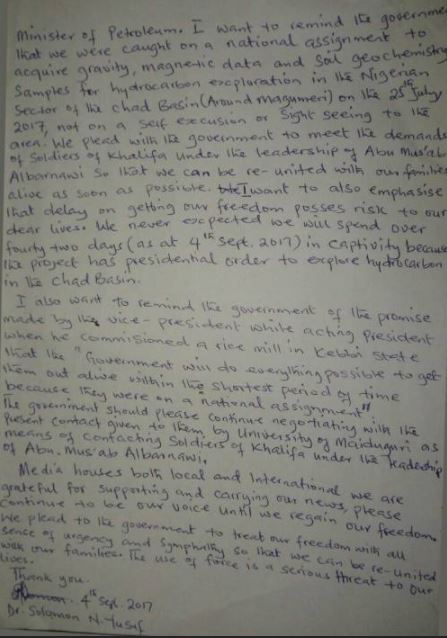 Minister of Petroleum. I want to remind the governme
that we were caught on a national assignment to
acquire gravity, magnetic data and soil geochemistry
samples for hydrocarbon excploration in the Nigerian
Sector of the chad Basin (Around magumeri) on the 25th July
2017, not on a self excusion or sight seeing to the
area. We plead with the government to meet the demands
of soldiers of Khalifa under the leadership of Abu Mus'ab
Albarnawi so that we can be re-united with our families
alive as soon as possible. I want to also emphasise
that delay on getting our freedom posses risk to our
dear lives. We never excpected we will spend over
fourty two days (as at 4th Sept. 2017) in captivity because
the project has presidential order to explore hydrocarbon
in the Chad Basin.
I also want to remind the government of the promise
made by the vice-president while acting president
when he commissioned a rice mill in Kebbi State
that the "Government will do everything possible to get
them out alive within the shortest period of time
because they were on a national assignment"
The government should please continue negotiating with the
present contact given to them by University of Maiduguri as
means of contacting Soldiers of Khalifa under the leadership
of Abu. Mus'ab Albarnawi.
Media houses both local and International we are
grateful for supporting and carrying our news, please
continue to be our voice until we regain our freedom.
We plead to the government to treat our freedom with all
sence of urgency and symphathy so that we can be re-united
with our families. The use of force is a serious threat to our
lives.
Thank you.
4th Sept. 2017
Dr. Solomon N. Yusuf